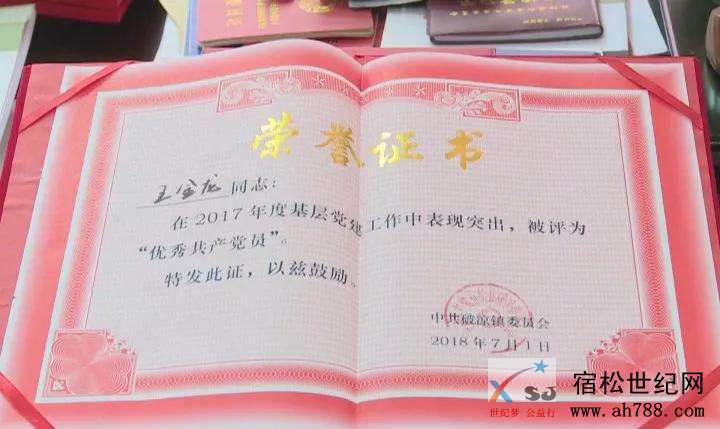 荣誉证书
王金龙 同志：
在 2017 年度基层党建工作中表现突出，被评为
“优秀共产党员”。
特发此证，以兹鼓励。
中共破凉镇委员会
2018 年 7 月 1 日
SJ
世纪梦 公益行
宿松世纪网
www.ah788.com